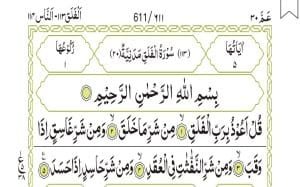 عمّ ٣٠ 611/٦١١ الفلق ١١٣- الناس ١١٤
اٰيَاتُهَا ٥ (١١٣) سُوْرَةُ الْفَلَقِ مَدَنِيَّةٌ (٢٠) رُكُوْعُهَا ١
بِسْمِ اللّٰهِ الرَّحْمٰنِ الرَّحِيْمِ
قُلْ اَعُوْذُ بِرَبِّ الْفَلَقِ ۙ﴿١﴾ مِنْ شَرِّ مَا خَلَقَ ۙ﴿٢﴾ وَمِنْ شَرِّ غَاسِقٍ اِذَا
وَقَبَ ۙ﴿٣﴾ وَمِنْ شَرِّ النَّفّٰثٰتِ فِي الْعُقَدِ ۙ﴿٤﴾ وَمِنْ شَرِّ حَاسِدٍ اِذَا حَسَدَ ﴿٥﴾